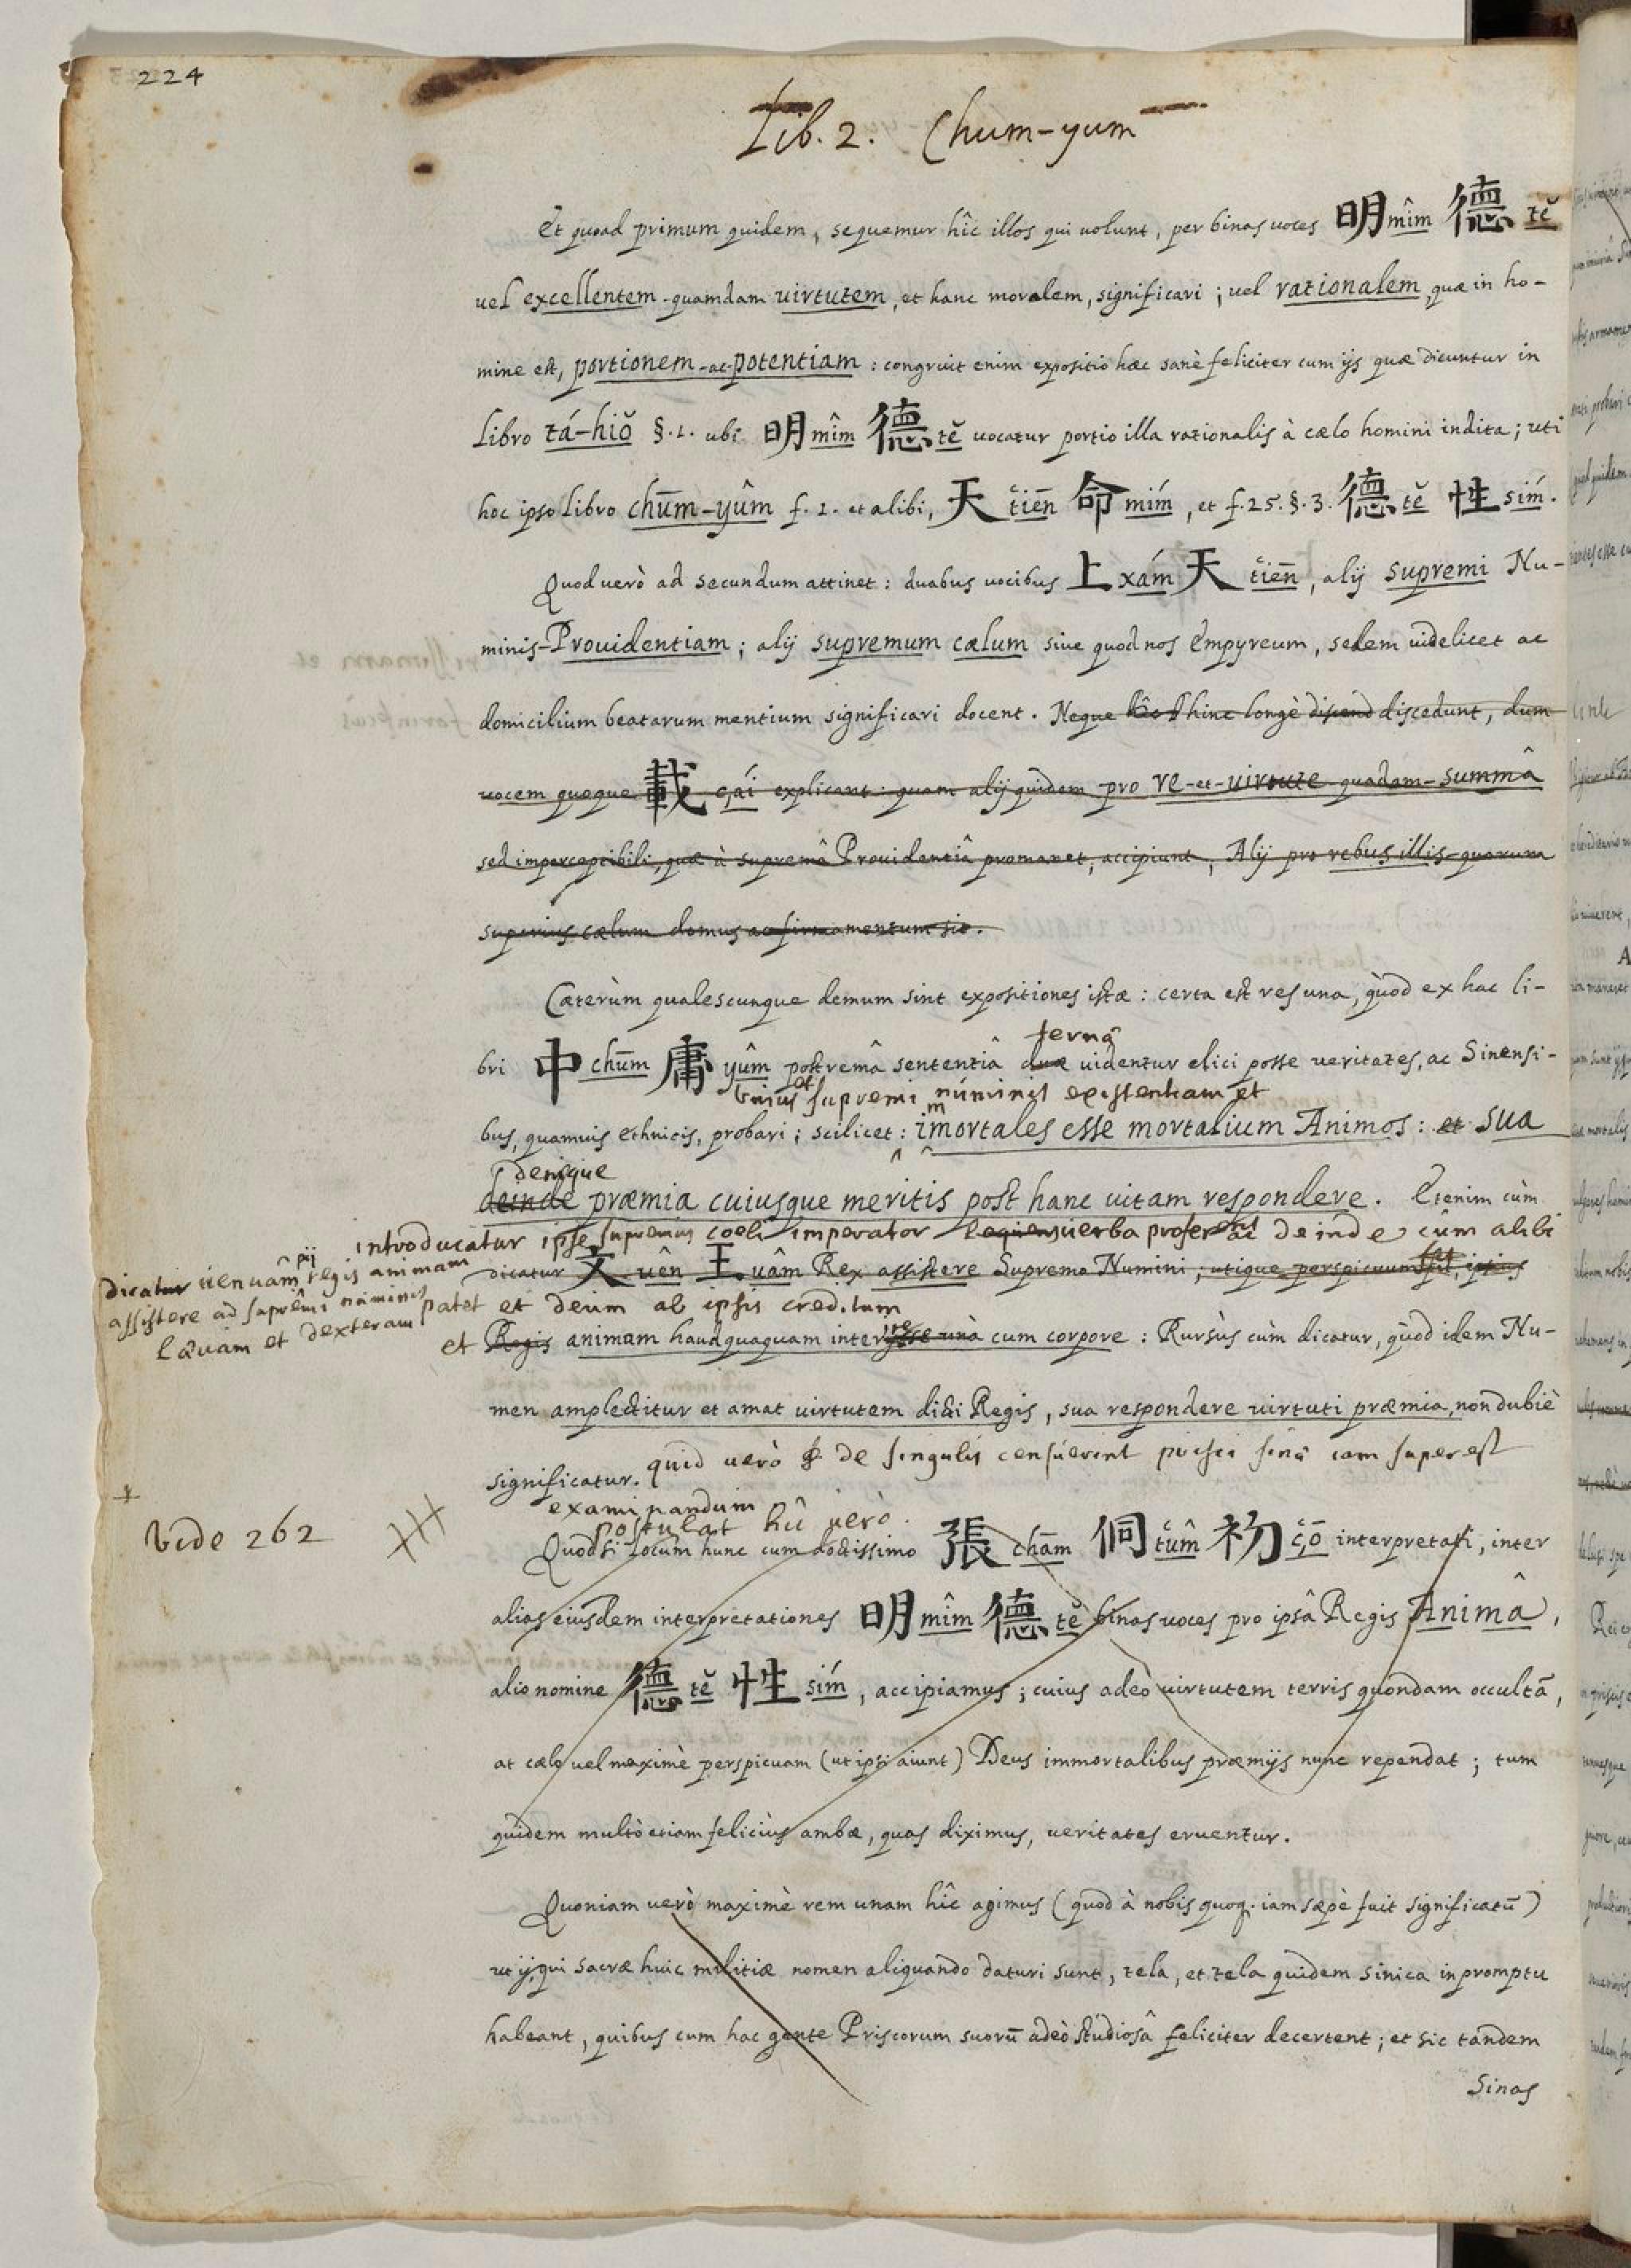 224
Lib. 2. Chum-yum
Et quoad primum quidem, sequemur hîc illos qui uolunt, per binas uoces 明 mîm 德 tě
uel excellentem quamdam uirtutem, et hanc moralem, significari; uel rationalem, quæ in ho-
mine est, portionem-ac-potentiam: congruit enim expositio hæc sanè feliciter cum ijs quæ dicuntur in
Libro tá-hiŏ §.1. ubi 明 mîm 德 tě uocatur portio illa rationalis à cælo homini indita; uti
hoc ipso Libro chūm-yûm f.1. et alibi, 天 tiēn 命 mím, et f.25. §.3. 德 tě 性 sím.
Quod uerò ad secundum attinet: duabus uocibus 上 xám 天 tiēn, alij supremi Nu-
minis-Prouidentiam; alij supremum cælum siue quod nos Empyreum, sedem uidelicet ac
domicilium beatarum mentium significari docent. Neque hinc longè discedunt, dum
uocem quoque 載 çái explicant: quam alij quidem pro re-et-uirtute quadam-summâ
sed imperceptibili, quæ à supremâ Prouidentiâ promanet, accipiunt, Alij pro rebus illis-quarum
superius cælum domus ac firmamentum sit.
Cæterùm qualescunque demum sint expositiones istæ: certa est res una, quòd ex hac li-
ternæ
bri 中 chūm 庸 yûm postremâ sententiâ duæ uidentur elici posse ueritates, ac Sinensi-
Unius et supremi numinis existentiam et
bus, quamuis ethnicis, probari; scilicet: immortales esse mortalium Animos: et sua
denique
deinde præmia cuiusque meritis post hanc uitam respondere. Etenim cùm
introducatur ipse supremus coeli imperator uerba proferens deinde cûm alibi
dicatur uenuâm pij regis animam
dicatur 文 uên 王 uâm Rex assistere Supremo Numini; utique perspicuum
assistere ad suprêmi numinis
patet et deum ab ipsis creditum
læuam et dexteram
et Regis animam haudquaquam interire cum corpore: Rursùs cùm dicatur, quòd idem Nu-
men amplectitur et amat uirtutem dicti Regis, sua respondere uirtuti præmia, non dubiè
significatur. quid uerò de singulis censuerint prisci sinæ iam superest
examinandum
postulat hîc uerò
Vide 262
Quodsi Locum hunc cum doctissimo 張 chām 侗 tûm 初 çō interpretati, inter
alias eiusdem interpretationes 明 mîm 德 tě binas uoces pro ipsâ Regis Animâ,
alio nomine 德 tě 性 sím, accipiamus; cuius adeò uirtutem terris quondam occultā,
at cælo uel maximè perspicuam (ut ipsi aiunt) Deus immortalibus præmijs nunc rependat; tum
quidem multò etiam feliciùs ambæ, quas diximus, ueritates eruentur.
Quoniam uerò maximè rem unam hîc agimus (quod à nobis quoq. iam sæpè fuit significatū)
ut ij, qui sacræ huic militiæ nomen aliquando daturi sunt, tela, et tela quidem sinica in promptu
habeant, quibus cum hac gente Priscorum suorū adeò studiosâ feliciter decertent; et sic tandem
Sinas